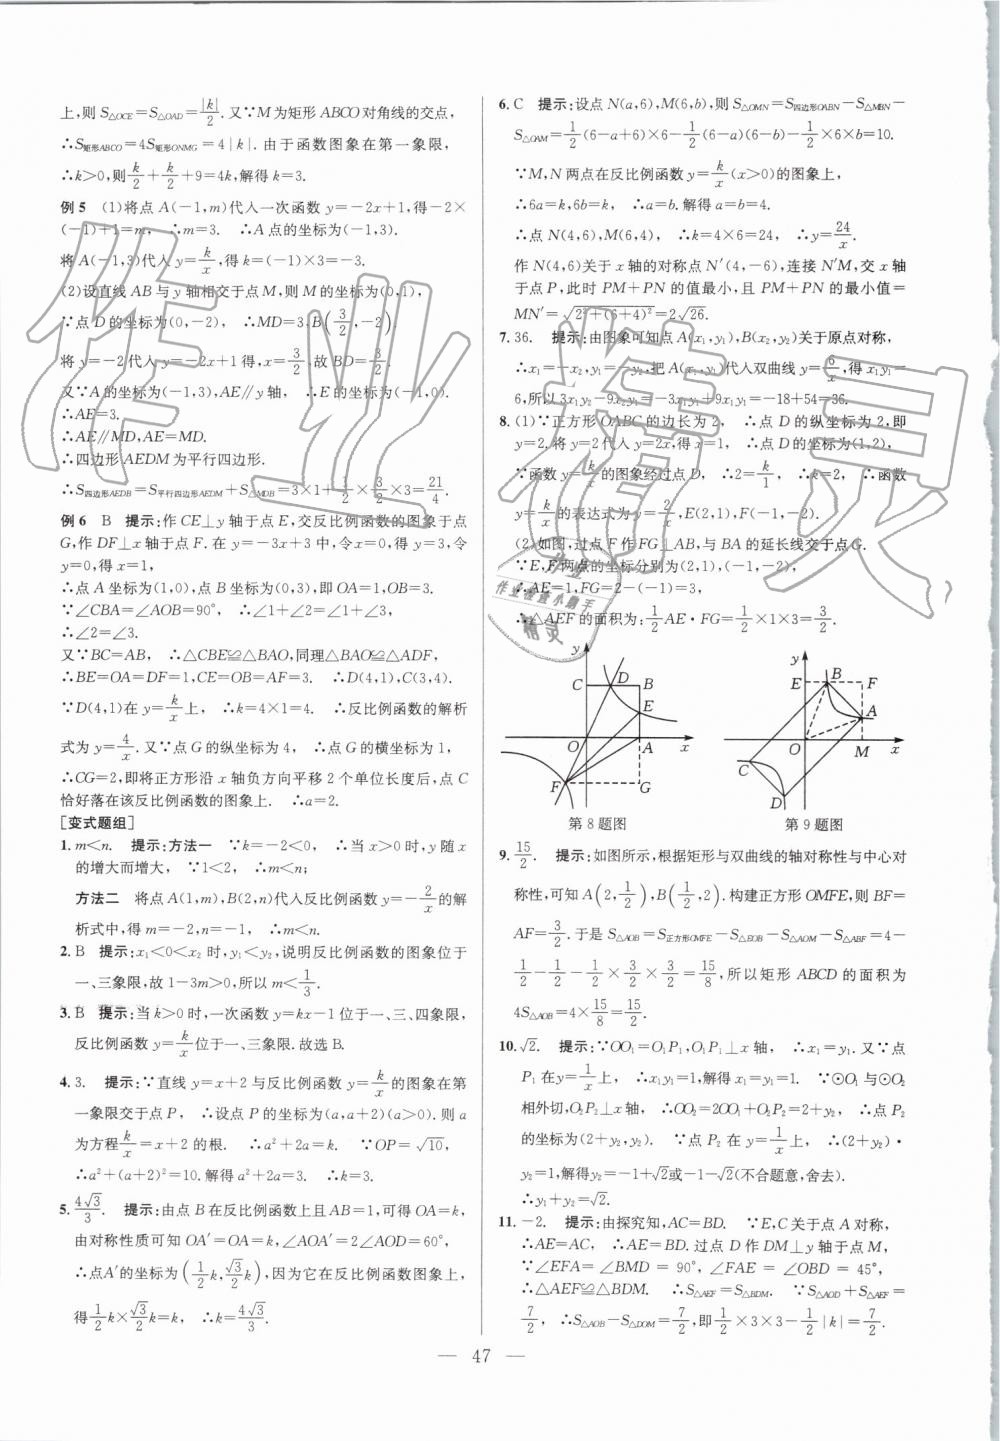 上,则 S△OCE=S△OAD=|k|/2. 又∵M为矩形 ABCO 对角线的交点,
∴S矩形ABCO=4S矩形ONMG=4|k|. 由于函数图象在第一象限,
∴k>0,则k/2+k/2+9=4k,解得 k=3.
例 5 (1)将点 A(-1,m)代入一次函数 y=-2x+1,得-2×
(-1)+1=m, ∴m=3. ∴A 点的坐标为(-1,3).
将 A(-1,3)代入 y=k/x,得 k=(-1)×3=-3.
(2)设直线 AB 与 y 轴相交于点 M,则 M 的坐标为(0,1),
∵点 D 的坐标为(0,-2), ∴MD=3,B(3/2,-2).
将 y=-2代入 y=-2x+1得,x=3/2,故 BD=3/2.
又∵A 的坐标为(-1,3),AE∥y轴, ∴E 的坐标为(-1,0).
∴AE=3.
∴AE∥MD,AE=MD.
∴四边形 AEDM 为平行四边形.
∴S四边形AEDB=S平行四边形AEDM+S△MDB=3×1+1/2×3/2×3=21/4.
例 6 B 提示:作 CE⊥y 轴于点 E,交反比例函数的图象于点
G,作 DF⊥x 轴于点 F.在 y=-3x+3 中,令x=0,得 y=3,令
y=0,得 x=1.
∴点 A 坐标为(1,0),点 B 坐标为(0,3),即 OA=1,OB=3.
∵∠CBA=∠AOB=90°, ∴∠1+∠2=∠1+∠3,
∴∠2=∠3.
又∵BC=AB, ∴△CBE≌△BAO,同理△BAO≌△ADF,
∴BE=OA=DF=1,CE=OB=AF=3. ∴D(4,1),C(3,4).
∵D(4,1)在 y=k/x上, ∴k=4×1=4. ∴反比例函数的解析
式为 y=4/x. 又∵点 G 的纵坐标为 4, ∴点 G 的横坐标为 1.
∴CG=2,即将正方形沿 x 轴负方向平移 2 个单位长度后,点 C
恰好落在该反比例函数的图象上. ∴a=2.
[变式题组]
1. m<n. 提示:方法一 ∵k=-2<0, ∴当 x>0 时,y 随 x
的增大而增大, ∵1<2, ∴m<n;
方法二 将点 A(1,m),B(2,n)代入反比例函数 y=-2/x的解
析式中,得 m=-2,n=-1, ∴m<n.
2. B 提示:x₁<0<x₂ 时,y₁<y₂,说明反比例函数的图象位于
一、三象限,故 1-3m>0,所以 m<1/3.
3. B 提示:当 k>0 时,一次函数 y=kx-1 位于一、三、四象限,
反比例函数 y=k/x位于一、三象限.故选 B.
4. 3. 提示:∵直线 y=x+2 与反比例函数 y=k/x的图象在第
一象限交于点 P, ∴设点 P 的坐标为(a,a+2)(a>0). 则 a
为方程k/x=x+2 的根. ∴a²+2a=k. ∵OP=√10,
∴a²+(a+2)²=10. 解得 a²+2a=3. ∴k=3.
5. 4√3/3. 提示:由点 B 在反比例函数上且 AB=1,可得 OA=k,
由对称性质可知 OA′=OA=k,∠AOA′=2∠AOD=60°,
∴点A′的坐标为(1/2k,√3/2k),因为它在反比例函数图象上,
得1/2k×√3/2k=k, ∴k=4√3/3.
6. C 提示:设点 N(a,6),M(6,b),则 S△OMN=S四边形OABN-S△MBN-
S△OAM=1/2(6-a+6)×6-1/2(6-a)(6-b)-1/2×6×b=10.
∵M,N 两点在反比例函数 y=k/x(x>0)的图象上,
∴6a=k,6b=k, ∴a=b. 解得 a=b=4.
∴点 N(4,6),M(6,4), ∴k=4×6=24, ∴y=24/x.
作 N(4,6)关于 x 轴的对称点 N′(4,-6),连接 N′M,交 x 轴
于点 P,此时 PM+PN 的值最小,且 PM+PN 的最小值=
MN′=√(2²+(6+4)²)=2√26.
7. 36. 提示:由图象可知点 A(x₁,y₁),B(x₂,y₂)关于原点对称,
∴x₁=-x₂,y₁=-y₂,把 A(x₁,y₁)代入双曲线 y=6/x,得 x₁y₁=
6,所以 3x₁y₂-9x₂y₁=-3x₁y₁+9x₁y₁=-18+54=36.
8. (1)∵正方形 OABC 的边长为 2, ∴点 D 的纵坐标为 2,即
y=2.将 y=2 代入 y=2x,得 x=1, ∴点 D 的坐标为(1,2),
∵函数 y=k/x的图象经过点 D, ∴2=k/1, ∴k=2, ∴函数
y=k/x的表达式为 y=2/x,E(2,1),F(-1,-2).
(2.如图,过点 F 作 FG⊥AB,与 BA 的延长线交于点 G.
∵E,F 两点的坐标分别为(2,1),(-1,-2),
∴AE=1,FG=2-(-1)=3,
∴△AEF 的面积为:1/2AE·FG=1/2×1×3=3/2.
y
C D B
E
O A x
F G
第 8 题图
y
E B F
A
O M x
C
D
第 9 题图
9. 15/2. 提示:如图所示,根据矩形与双曲线的轴对称性与中心对
称性,可知 A(2,1/2),B(1/2,2). 构建正方形 OMFE,则 BF=
AF=3/2. 于是 S△AOB=S正方形OMFE-S△EOB-S△AOM-S△ABF=4-
1/2-1/2-1/2×3/2×3/2=15/8,所以矩形 ABCD 的面积为
4S△AOB=4×15/8=15/2.
10. √2. 提示:∵OO₁=O₁P₁,O₁P₁⊥x 轴, ∴x₁=y₁. 又∵点
P₁ 在 y=1/x上, ∴x₁y₁=1,解得 x₁=y₁=1. ∵⊙O₁ 与⊙O₂
相外切,O₂P₂⊥x 轴, ∴OO₂=2OO₁+O₂P₂=2+y₂, ∴点 P₂
的坐标为(2+y₂,y₂). ∵点 P₂ 在 y=1/x上, ∴(2+y₂)·
y₂=1,解得y₂=-1+√2或-1-√2(不合题意,舍去).
∴y₁+y₂=√2.
11. -2. 提示:由探究知,AC=BD. ∵E,C 关于点 A 对称,
∴AE=AC, ∴AE=BD. 过点 D 作 DM⊥y 轴于点 M,
∵∠EFA=∠BMD=90°,∠FAE=∠OBD=45°,
∴△AEF≌△BDM. ∴S△AEF=S△BDM. ∵S△AOD+S△AEF=
7/2, ∴S△AOB-S△DOM=7/2,即1/2×3×3-1/2|k|=7/2,
— 47 —
作业精灵
作业
作业检查小助手
精灵